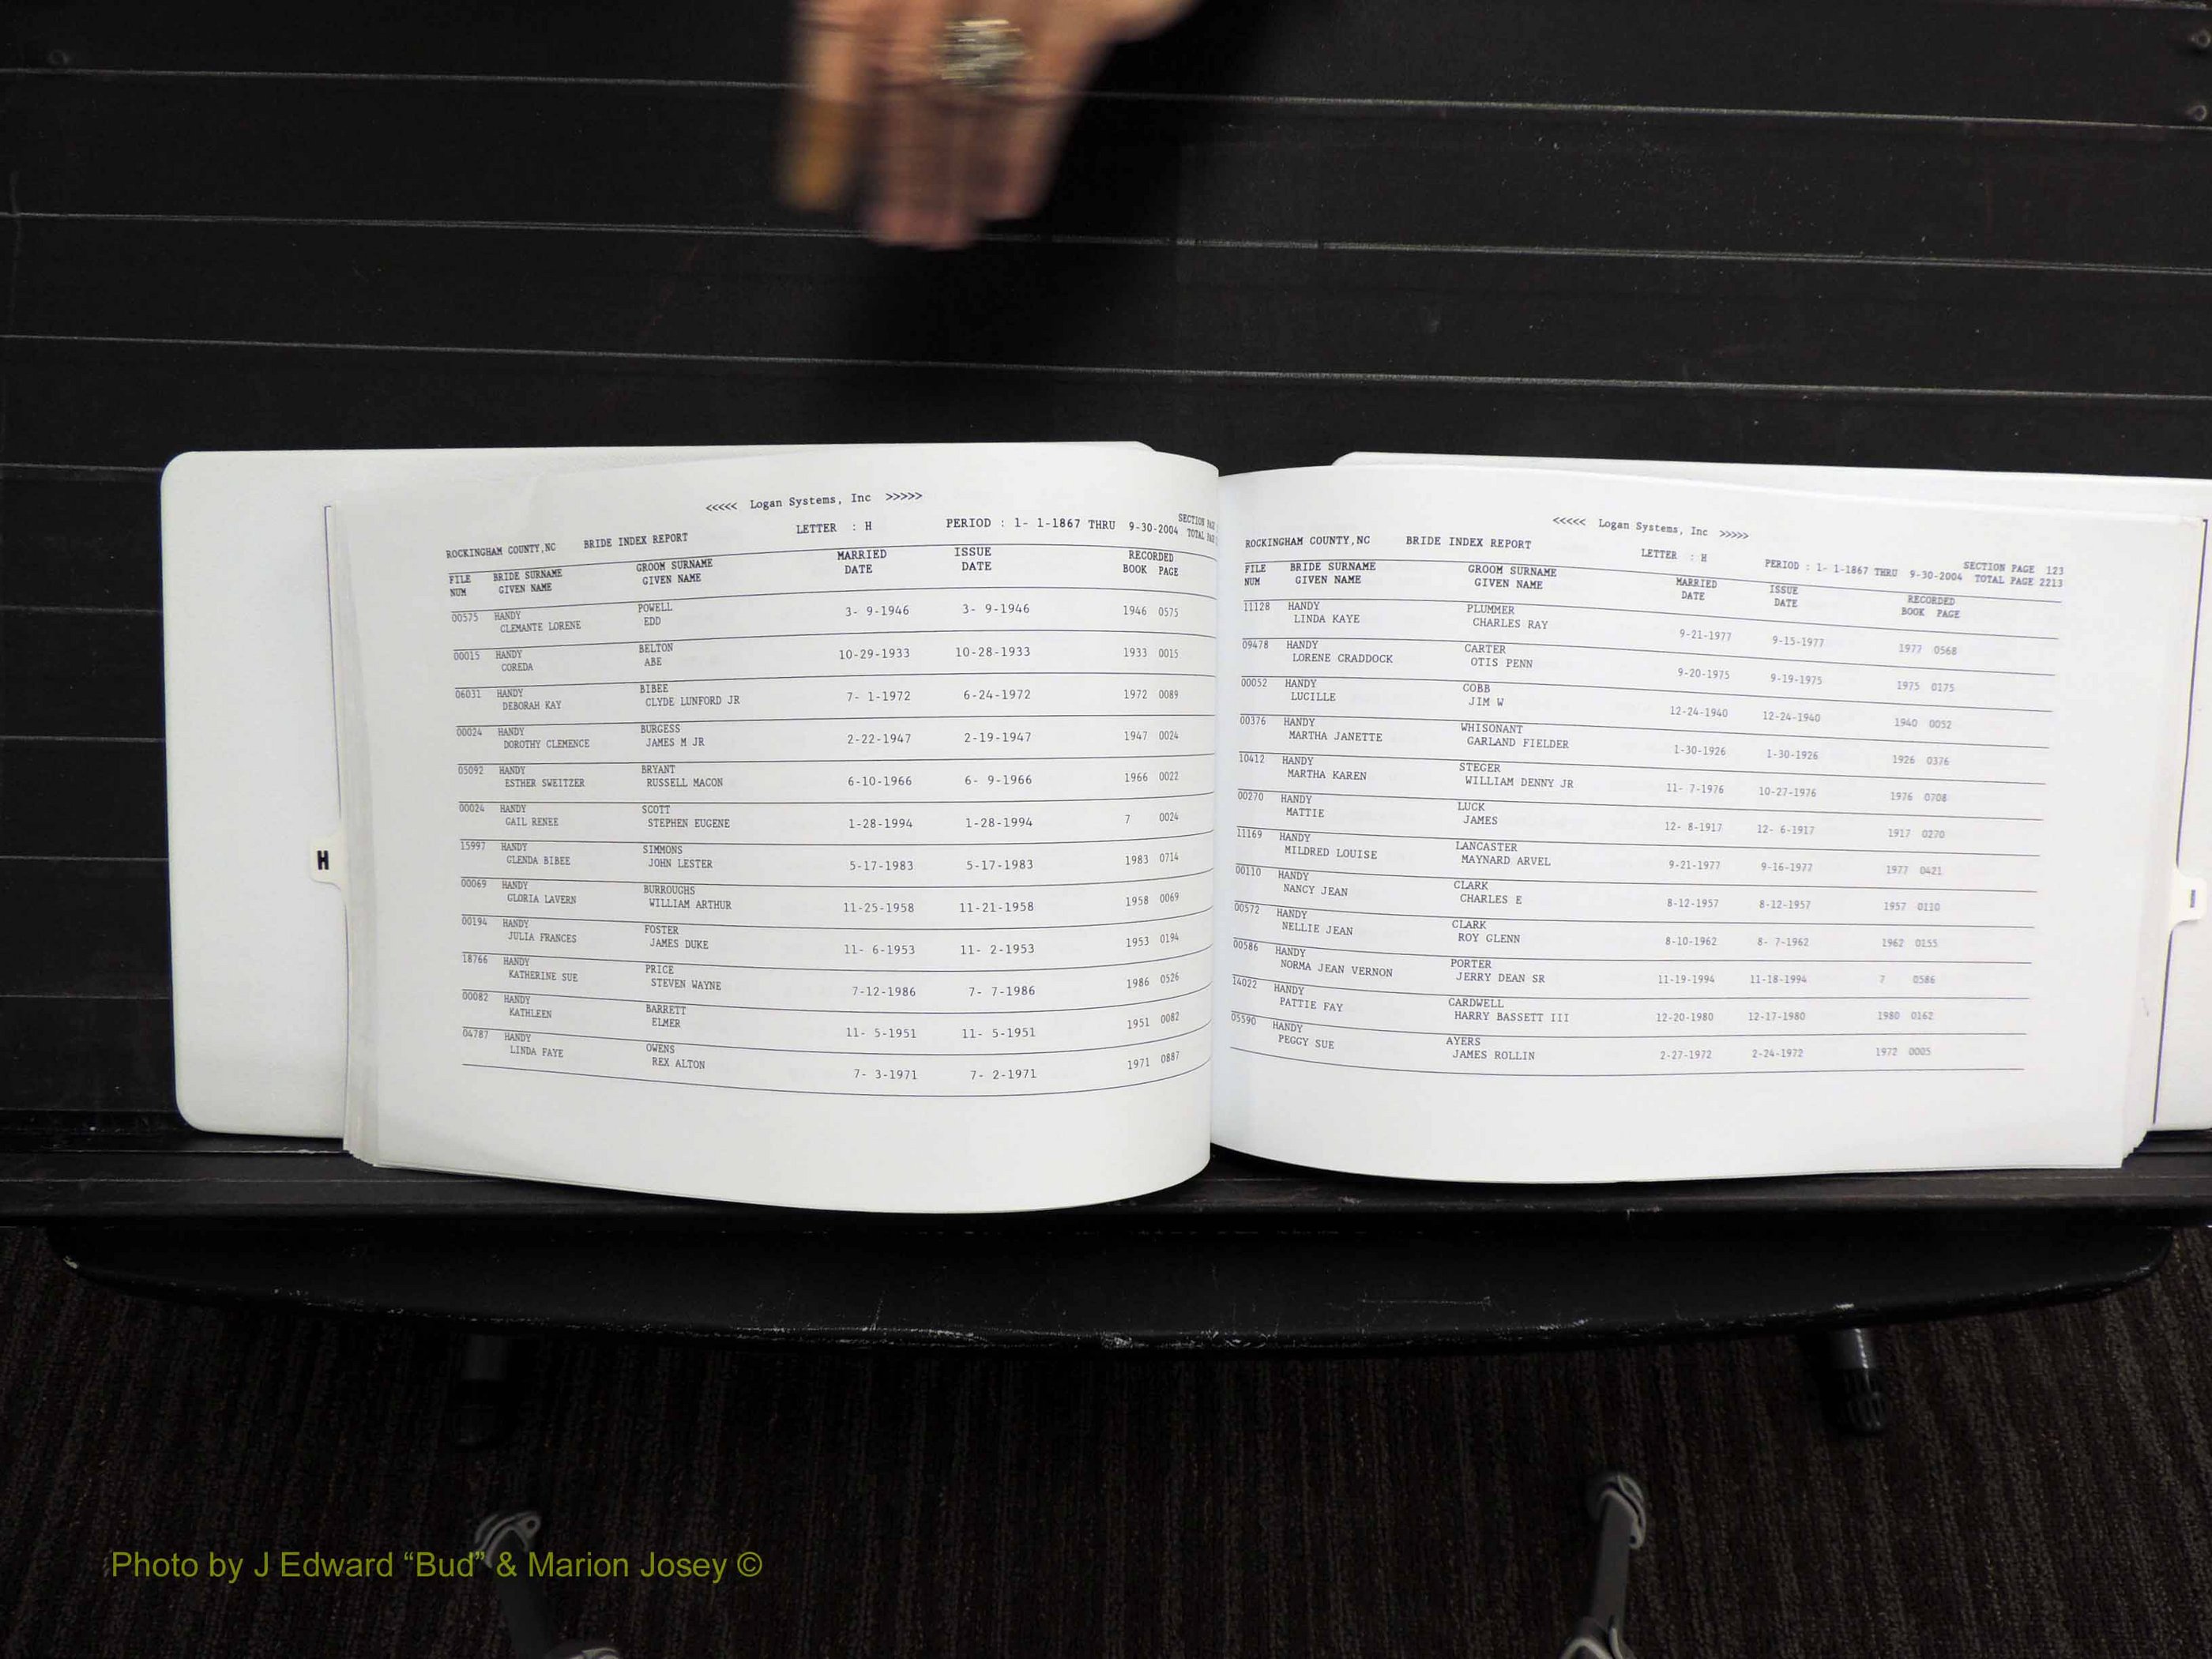 <<<<< Logan Systems, Inc >>>>>
ROCKINGHAM COUNTY,NC BRIDE INDEX REPORT LETTER : H PERIOD : 1- 1-1867 THRU 9-30-2004 SECTION PAGE
TOTAL PAGE
FILE BRIDE SURNAME GROOM SURNAME MARRIED ISSUE RECORDED
NUM GIVEN NAME GIVEN NAME DATE DATE BOOK PAGE
00575 HANDY POWELL 3- 9-1946 3- 9-1946 1946 0575
CLEMANTE LORENE EDD
00015 HANDY BELTON 10-29-1933 10-28-1933 1933 0015
COREDA ABE
06031 HANDY BIBEE 7- 1-1972 6-24-1972 1972 0089
DEBORAH KAY CLYDE LUNFORD JR
00024 HANDY BURGESS 2-22-1947 2-19-1947 1947 0024
DOROTHY CLEMENCE JAMES M JR
05092 HANDY BRYANT 6-10-1966 6- 9-1966 1966 0022
ESTHER SWEITZER RUSSELL MACON
00024 HANDY SCOTT 1-28-1994 1-28-1994 7 0024
GAIL RENEE STEPHEN EUGENE
15997 HANDY SIMMONS 5-17-1983 5-17-1983 1983 0714
GLENDA BIBEE JOHN LESTER
00069 HANDY BURROUGHS 11-25-1958 11-21-1958 1958 0069
GLORIA LAVERN WILLIAM ARTHUR
00194 HANDY FOSTER 11- 6-1953 11- 2-1953 1953 0194
JULIA FRANCES JAMES DUKE
18766 HANDY PRICE 7-12-1986 7- 7-1986 1986 0526
KATHERINE SUE STEVEN WAYNE
00082 HANDY BARRETT 11- 5-1951 11- 5-1951 1951 0082
KATHLEEN ELMER
04787 HANDY OWENS 7- 3-1971 7- 2-1971 1971 0887
LINDA FAYE REX ALTON
H
<<<<< Logan Systems, Inc >>>>>
ROCKINGHAM COUNTY,NC BRIDE INDEX REPORT LETTER : H PERIOD : 1- 1-1867 THRU 9-30-2004 SECTION PAGE 123
TOTAL PAGE 2213
FILE BRIDE SURNAME GROOM SURNAME MARRIED ISSUE RECORDED
NUM GIVEN NAME GIVEN NAME DATE DATE BOOK PAGE
11128 HANDY PLUMMER 9-21-1977 9-15-1977 1977 0568
LINDA KAYE CHARLES RAY
09478 HANDY CARTER 9-20-1975 9-19-1975 1975 0175
LORENE CRADDOCK OTIS PENN
00052 HANDY COBB 12-24-1940 12-24-1940 1940 0052
LUCILLE JIM W
00376 HANDY WHISONANT 1-30-1926 1-30-1926 1926 0376
MARTHA JANETTE GARLAND FIELDER
10412 HANDY STEGER 11- 7-1976 10-27-1976 1976 0708
MARTHA KAREN WILLIAM DENNY JR
00270 HANDY LUCK 12- 8-1917 12- 6-1917 1917 0270
MATTIE JAMES
11169 HANDY LANCASTER 9-21-1977 9-16-1977 1977 0421
MILDRED LOUISE MAYNARD ARVEL
00110 HANDY CLARK 8-12-1957 8-12-1957 1957 0110
NANCY JEAN CHARLES E
00572 HANDY CLARK 8-10-1962 8- 7-1962 1962 0155
NELLIE JEAN ROY GLENN
00586 HANDY PORTER 11-19-1994 11-18-1994 7 0586
NORMA JEAN VERNON JERRY DEAN SR
14022 HANDY CARDWELL 12-20-1980 12-17-1980 1980 0162
PATTIE FAY HARRY BASSETT III
05590 HANDY AYERS 2-27-1972 2-24-1972 1972 0005
PEGGY SUE JAMES ROLLIN
I
Photo by J Edward “Bud” & Marion Josey ©